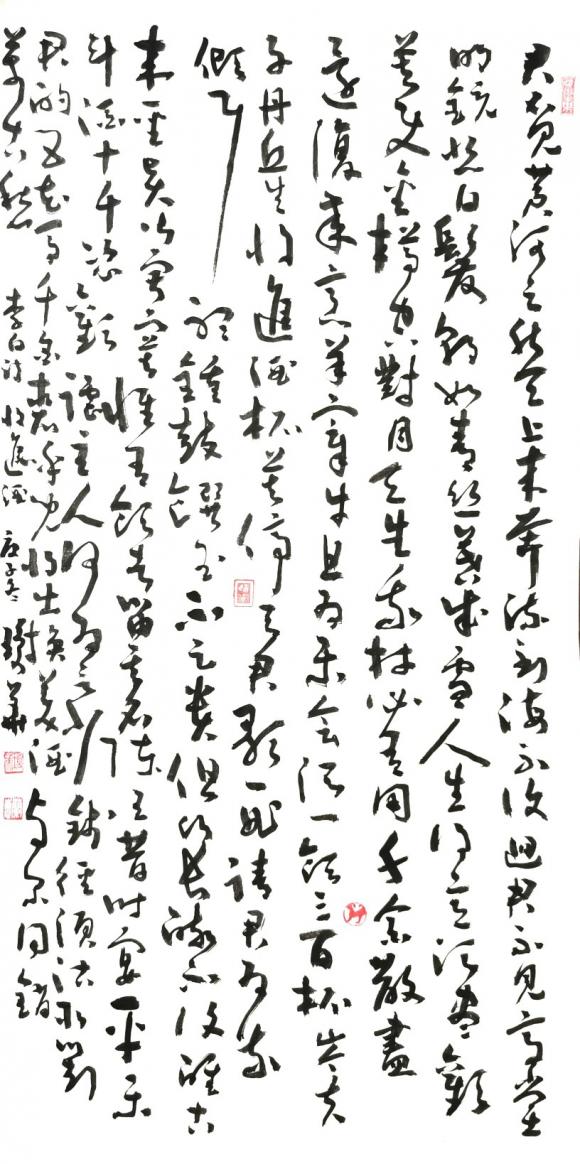 君不見黃河之水天上來奔流到海不復迴君不見高堂
明鏡悲白髮朝如青絲暮成雪人生得意須盡歡
莫使金樽空對月天生我材必有用千金散盡
還復來烹羊宰牛且為樂會須一飲三百杯岑夫
子丹丘生將進酒杯莫停與君歌一曲請君為我
傾耳聽鐘鼓饌玉不足貴但願長醉不復醒古
來聖賢皆寂寞惟有飲者留其名陳王昔時宴平樂
斗酒十千恣歡謔主人何為言少錢徑須沽取對
君酌五花馬千金裘呼兒將出換美酒與爾同銷
萬古愁 李白詩將進酒 庚子冬